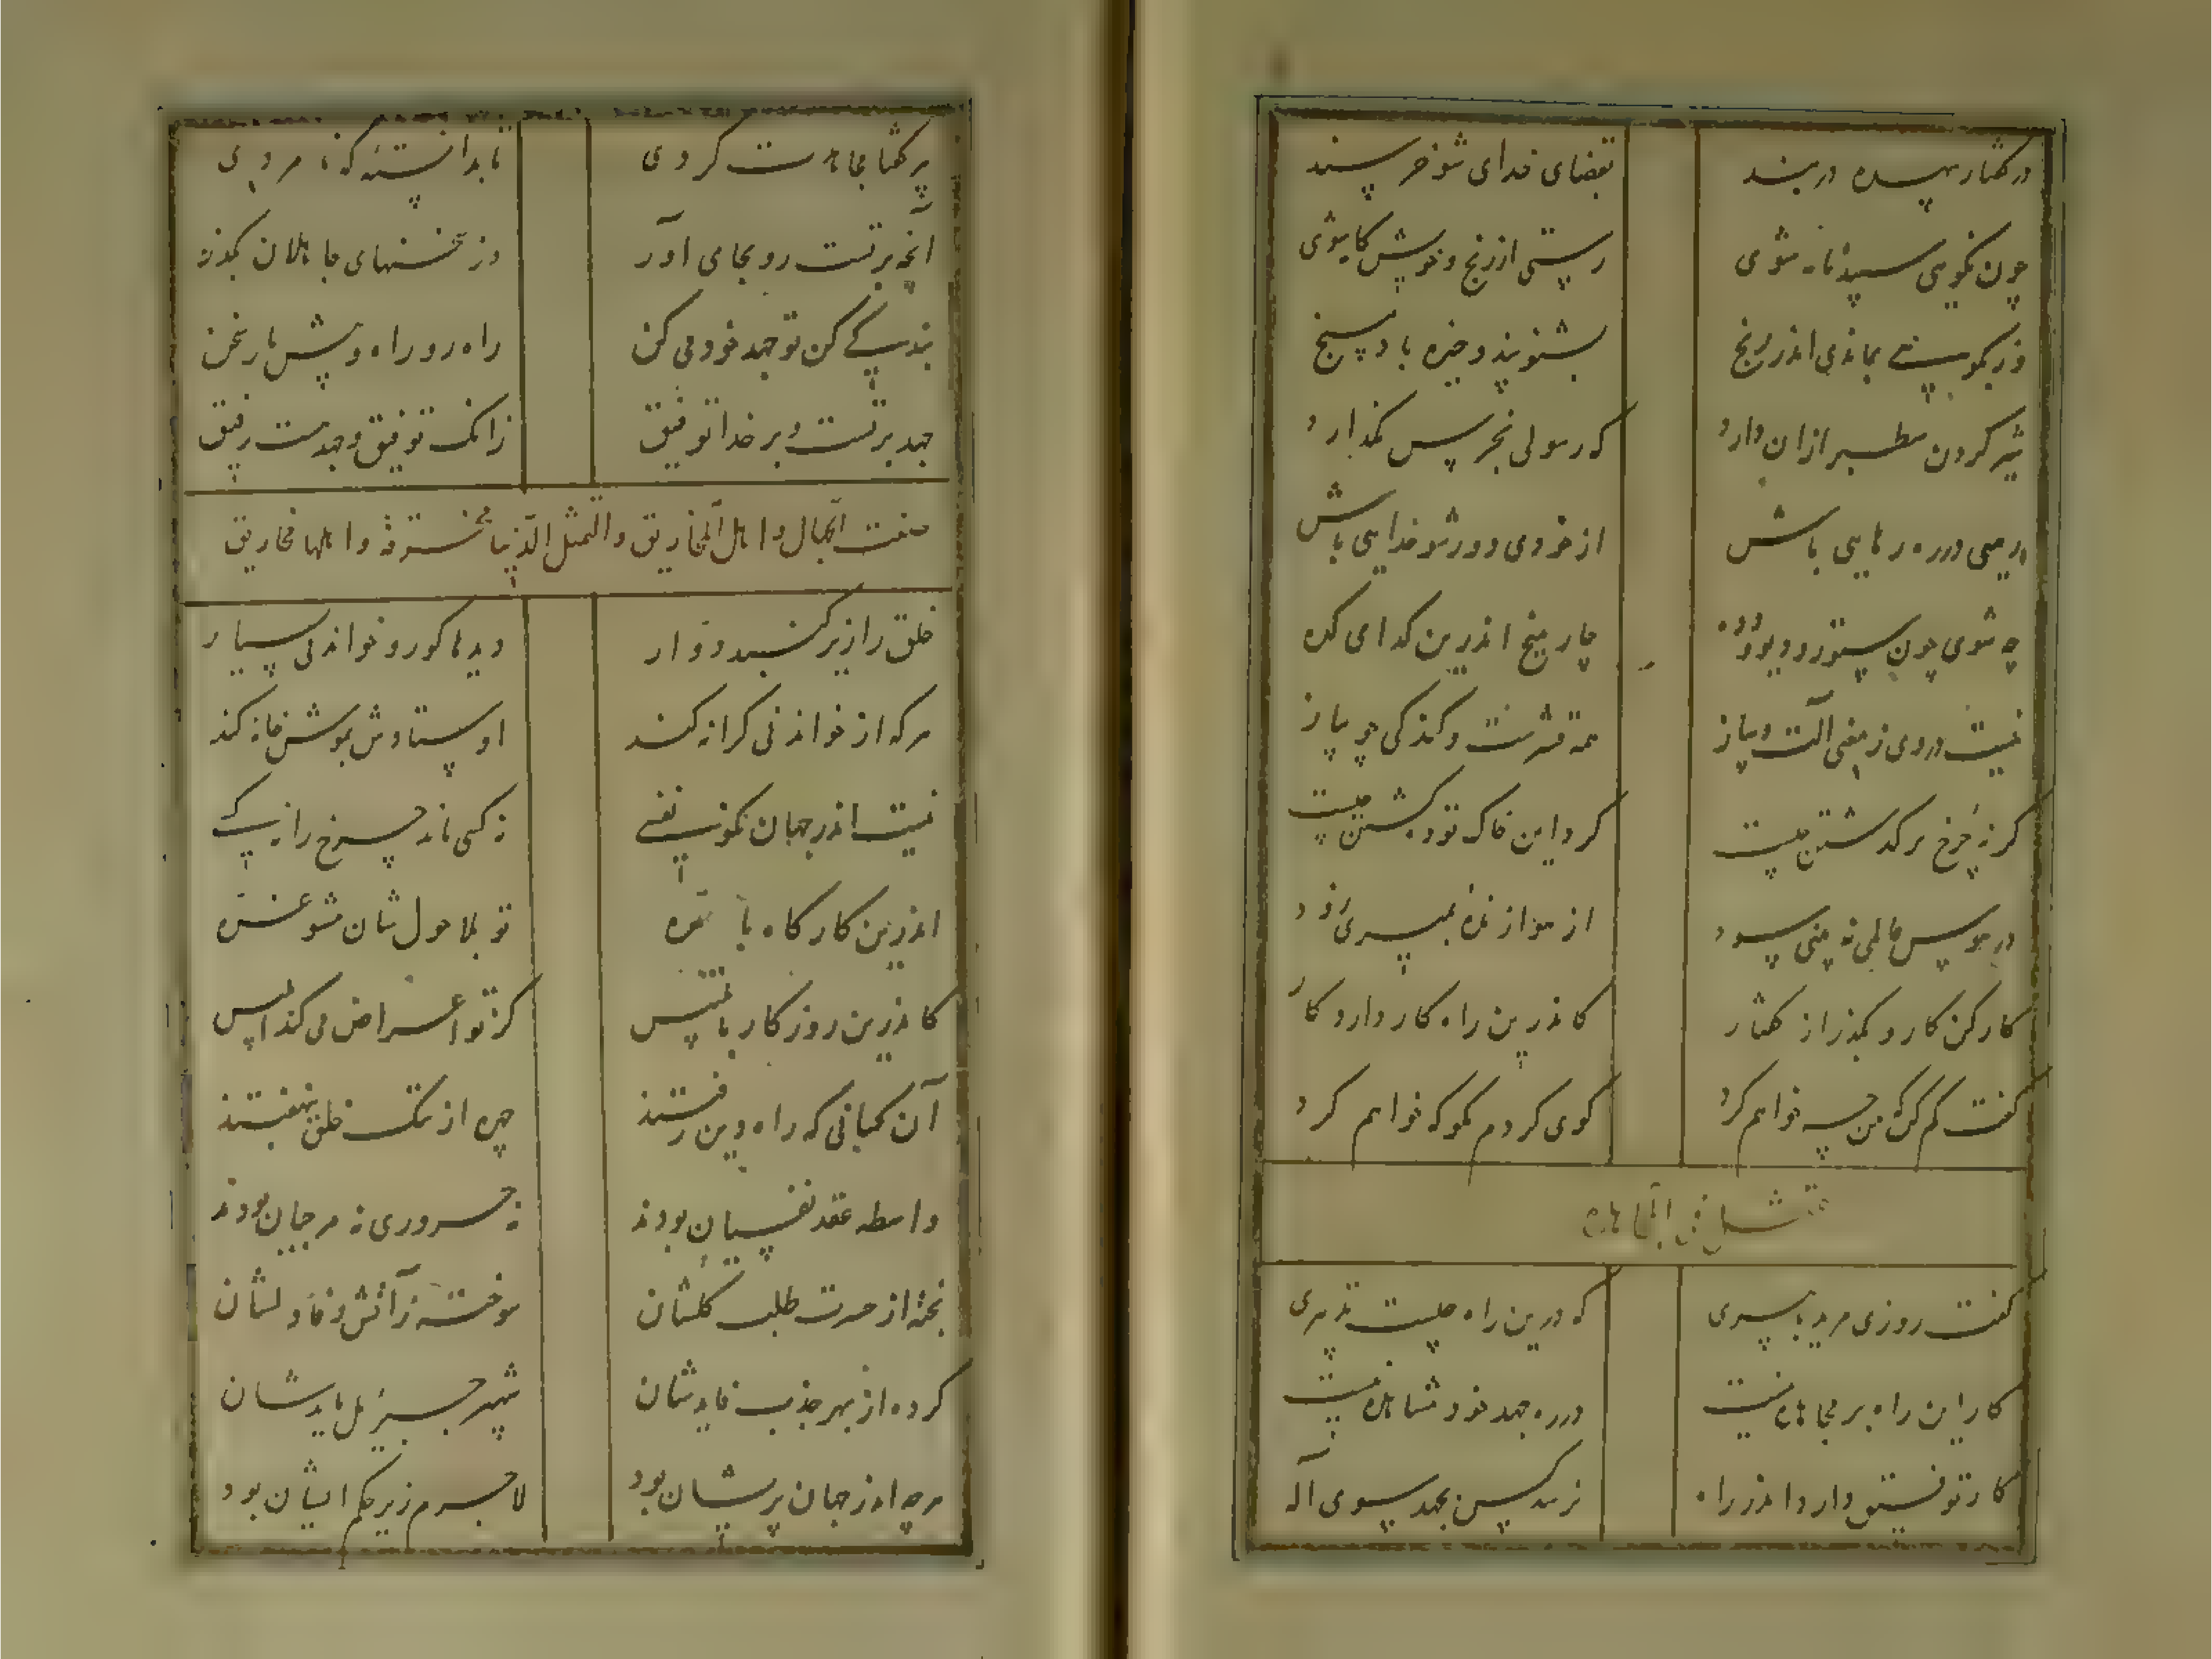 در گفتار بیهده دربند بقضای خدای شو خرسند
چون نکویی سپید نامه شوی رستی از رنج و خویش کامه شوی
ور نکو نیستی بماندی اندر رنج بشنو پند و خیره باد مسنج
شیر گردون سطبر ازان دارد که رسولی بخرس نگذارد
در رهایی باش از خودی دور شو خدایی باش
چه شوی چون ستور و دیو و دده چار میخ اندرین گدای کده
نیست در وی ز معنی آلت و ساز همه قشرست و گندگی چو پیاز
گر نه چرخ بر گذشتن چیست گرد این خاک توده گشتن چیست
در هوس عالمی نه بینی سود از هوا زنده بمیری زود
کار کن کار و بگذر از گفتار کاندرین راه کار دارد کار
گفت کم کن که من چه خواهم کرد گوی کردم مگو که خواهم کرد
تمثیل فی المجاهده
گفت روزی مرید با پیری که درین راه چیست تدبیری
کار این راه بر مجاهده نیست در ره جهد خود مشاهده نیست
کار توفیق دارد اندر راه نرسد کس بجهد سوی آله
پر گفتا مجاهدت کردی تا بدانسته که نامردی
آنچه بر تست رو بجای آور وز سخنهای جاهلان بگذر
بندگی کن تو جهد خود می کن راه رو راه و بیش مار سخن
جهد بر تست و بر خدا توفیق زانک توفیق و جهدست رفیق
صفت الجهال و اهل المخاریق والتمثل الدنیا مخستوقه و اهلها مخاریق
خلق را زیر گنبد دوار دیدها کور و خواندنی بسیار
هر که از خواندنی کرانه کند اوستادش بموش خانه کند
نیست اندر جهان نکو نفسی نه کسی ماند چرخ را نه کسی
اندرین کارگاه با تو بلا حول شان مشو غره
کاندرین روزگار با تلبیس گر تو اعراض می کند ابلیس
آن کسانی که راه دین رفتند چهره از ننگ خلق بنهفتند
واسطه عقد نفس بودند نه حروری نه مرجیان بودند
پخته از حسرت طلب گلشان سوخته ز آتش وفا دلشان
کرده از بهر جذب فایدشان شهپر جبرئیل مایدشان
هرچه اندر جهان پریشان بود لاجرم زیر حکم ایشان بود